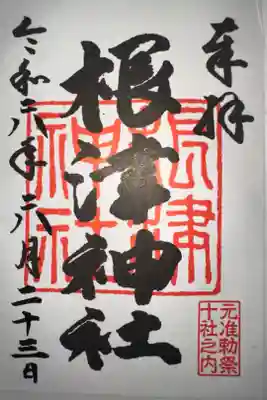 奉拝
根津神社
根津神社
令和六年六月二十三日
元准勅祭
十社之内